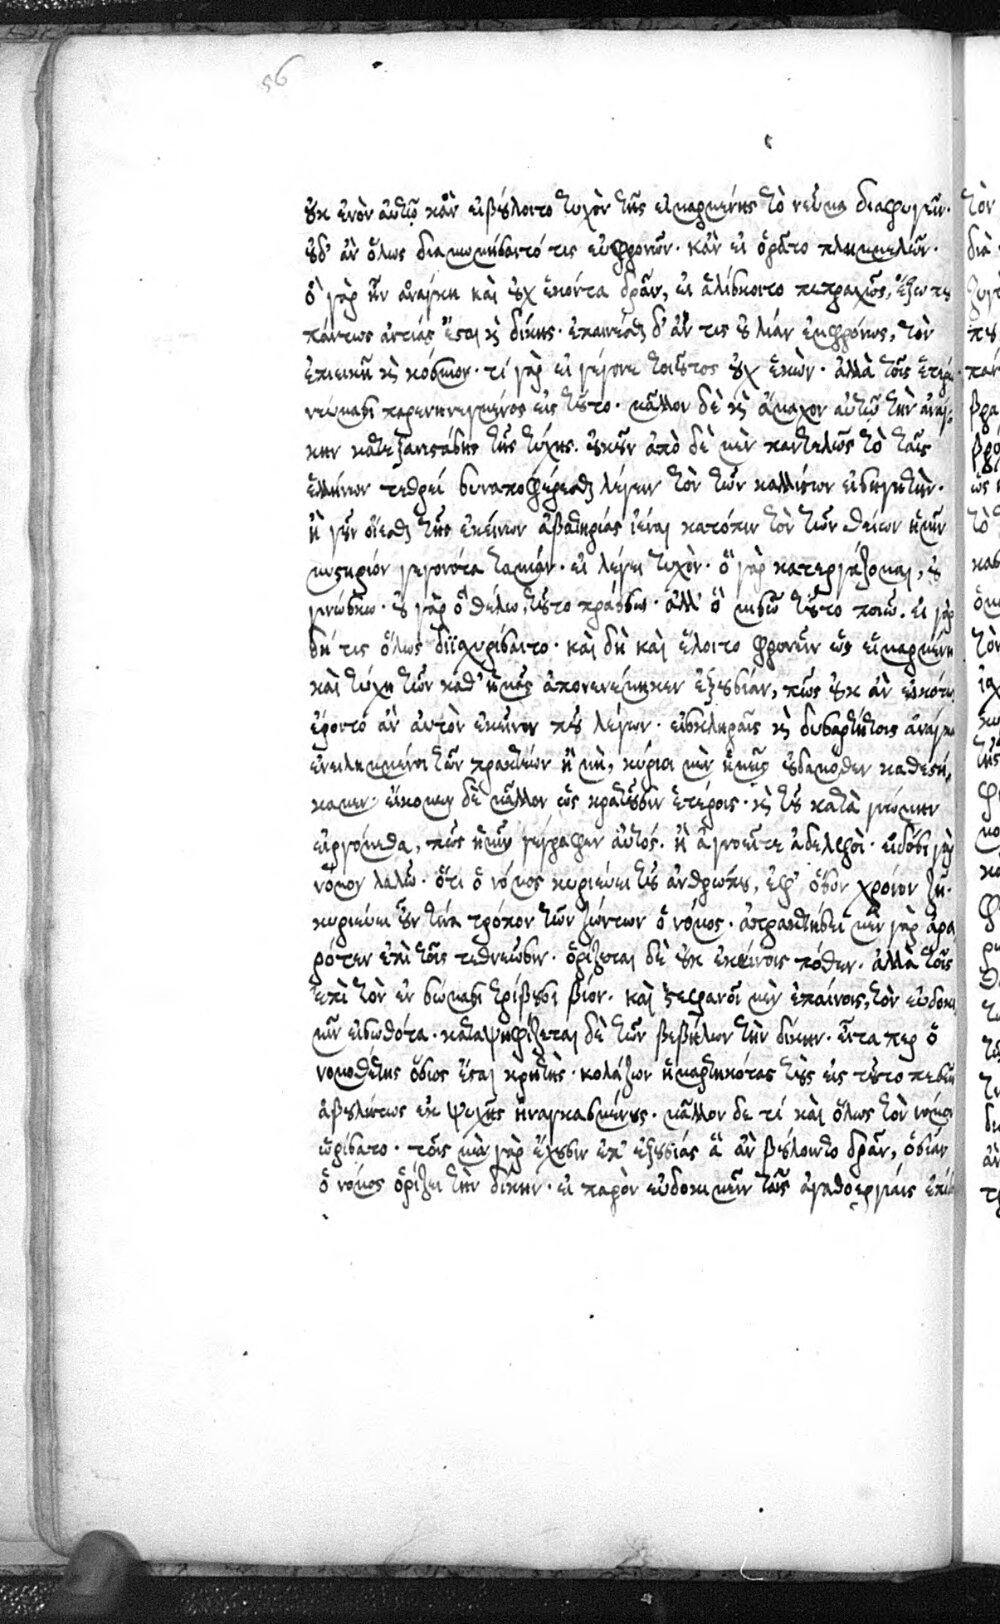 56
οὐκ ἐνὸν αὐτῷ κἂν εἰ βούλοιτο τυχὸν τῆς εἱμαρμένης τὸ νεῦμα διαφυγεῖν·
οὐδ' ἂν ὅλως διαμωμήσαιτό τις εὐφρονῶν· κἂν εἰ ὁρῷτο πλημμελῶν·
ὁ γὰρ ἦν ἀνάγκη καὶ οὐχ ἑκόντα δρᾶν, εἰ ἁλίσκοιτο πεπραχὼς, ἔξω που
πάντως αἰτίας ἔσται καὶ δίκης· ἐπαινέσαι δ' ἄν τις οὐ λίαν ἐμφρόνως, τὸν
ἐπιεικῆ καὶ κόσμιον· τί γὰρ εἰ γέγονε τοιοῦτος οὐχ ἑκὼν· ἀλλὰ τοῖς ἑτέρων
νεύμασι παρενηνεγμένος εἰς τοῦτο· μᾶλλον δὲ καὶ ἄμαχον αὐτῷ τὴν ἀνάγ-
κην κατεξανιστάσης τῆς τύχης· οὐκοῦν ἀπὸ δὲ μὲν παντελῶς τὸ ταῖς
ἑλλήνων τερθρεί συναποφέρεσθαι λέγειν τὸν τῶν καλλίστων εἰσηγητὴν·
ἢ γοῦν οἴεσθαι τῆς ἐκείνων ἀβελτηρίας ἰέναι κατόπιν τὸν τῶν θείων ἡμῖν
μυστηρίων γεγονότα ταμίαν· εἰ λέγει τυχὸν· ὃ γὰρ κατεργάζομαι, οὐ
γινώσκω· οὐ γὰρ ὃ θέλω, τοῦτο πράσσω· ἀλλ' ὃ μισῶ τοῦτο ποιῶ· εἰ γὰρ
δή τις ὅλως διϊσχυρίσαιτο· καὶ δὴ καὶ ἕλοιτο φρονεῖν ὡς εἱμαρμένη
καὶ τύχη τῶν καθ' ἡμᾶς ἀπονενέμηκεν ἐξουσίαν, πῶς οὐκ ἂν εἰκότως
ἔροιτό ἂν αὐτὸν ἐκεῖνον που λέγων· εἰ σκληραῖς καὶ δυσαρτήτοις ἀνάγκαις
ἐνειλημμένοι τῶν πρακτέων ἢ μὴ, κύριοι μὲν ἡμεῖς οὐδαμόθεν καθεστή-
καμεν· εἴκομεν δὲ μᾶλλον ὡς κρατοῦσιν ἑτέροις· καὶ τοῦ κατὰ γνώμην
εἰργόμεθα, πῶς ἡμῖν γέγραφεν αὐτός· ἢ ἀγνοεῖτε ἀδελφοί· εἰδόσι γὰρ
νόμον λαλῶ· ὅτι ὁ νόμος κυριεύει τοῦ ἀνθρώπου, ἐφ' ὅσον χρόνον ζῇ·
κυριεύει οὖν τίνα τρόπον τῶν ζώντων ὁ νόμος· ἀπρακτήσει μὲν γὰρ ἀρα
ρότεν ἐπὶ τοῖς τεθνεῶσιν· ὁρίζεται δὲ οὐκ ἐκείνοις πόθεν· ἀλλὰ τοῖς
ἔτι τὸν ἐν σώμασι τρίβουσι βίον· καὶ στεφανοῖ μὲν ἐπαίνοις, τὸν εὐδοκι
μεῖν εἰωθότα· καταψηφίζεται δὲ τῶν βεβήλων τὴν δίκην· εἶτα πῶς ὁ
νομοθέτης ὅσιος ἔσται κριτὴς· κολάζων ἡμαρτηκότας τοὺς εἰς τοῦτο πεσεῖν
ἀβουλήτως ἐκ ψυχῆς ἠναγκασμένους· μᾶλλον δὲ τί καὶ ὅλως τὸν νόμον
ὡρίσατο· τοῖς μὲν γὰρ ἔχουσιν ἐπ' ἐξουσίας ἃ ἂν βούλοιντο δρᾶν, ὁσίαν
ὁ νόμος ὁρίζει τὴν δίκην· εἰ παρὸν εὐδοκιμεῖν ταῖς ἀγαθοεργίαις